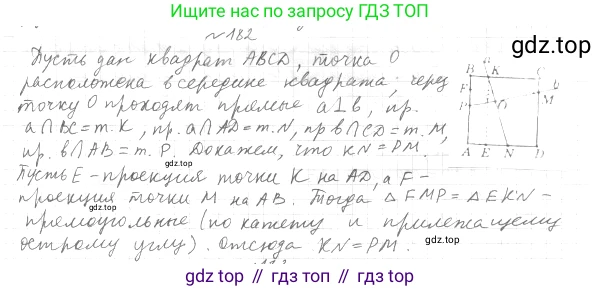 Ищите нас по запросу ГДЗ ТОП
№182
gdz.top
Пусть дан квадрат ABCD, точка O
расположена в середине квадрата; через
точку O проходят прямые a⊥b, пр.
a∩BC=т.K, пр. a∩AD=т.N, пр b∩CD=т.M,
пр. b∩AB=т.P. Докажем, что KN=PM.
Пусть E - проекция точки K на AD, а F -
проекция точки M на AB. Тогда △FMP=△EKN -
прямоугольные (по катету и прилежащему
острому углу). Отсюда KN=PM.
B
a
K
C
F
M
b
P
O
A
E
N
D
gdz.top
gdz.top
gdz.top
gdz.top // гдз.топ // gdz.top